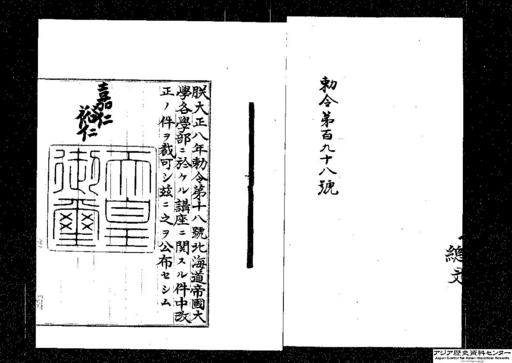 勅令第百九十八號
朕大正八年勅令第十八號北海道帝國大
學各學部ニ於ケル講座ニ関スル件中改
正ノ件ヲ裁可シ茲ニ之ヲ公布セシム
嘉仁
裕仁
天皇
御璽
總文
アジア歴史資料センター
Japan Center for Asian Historical Records